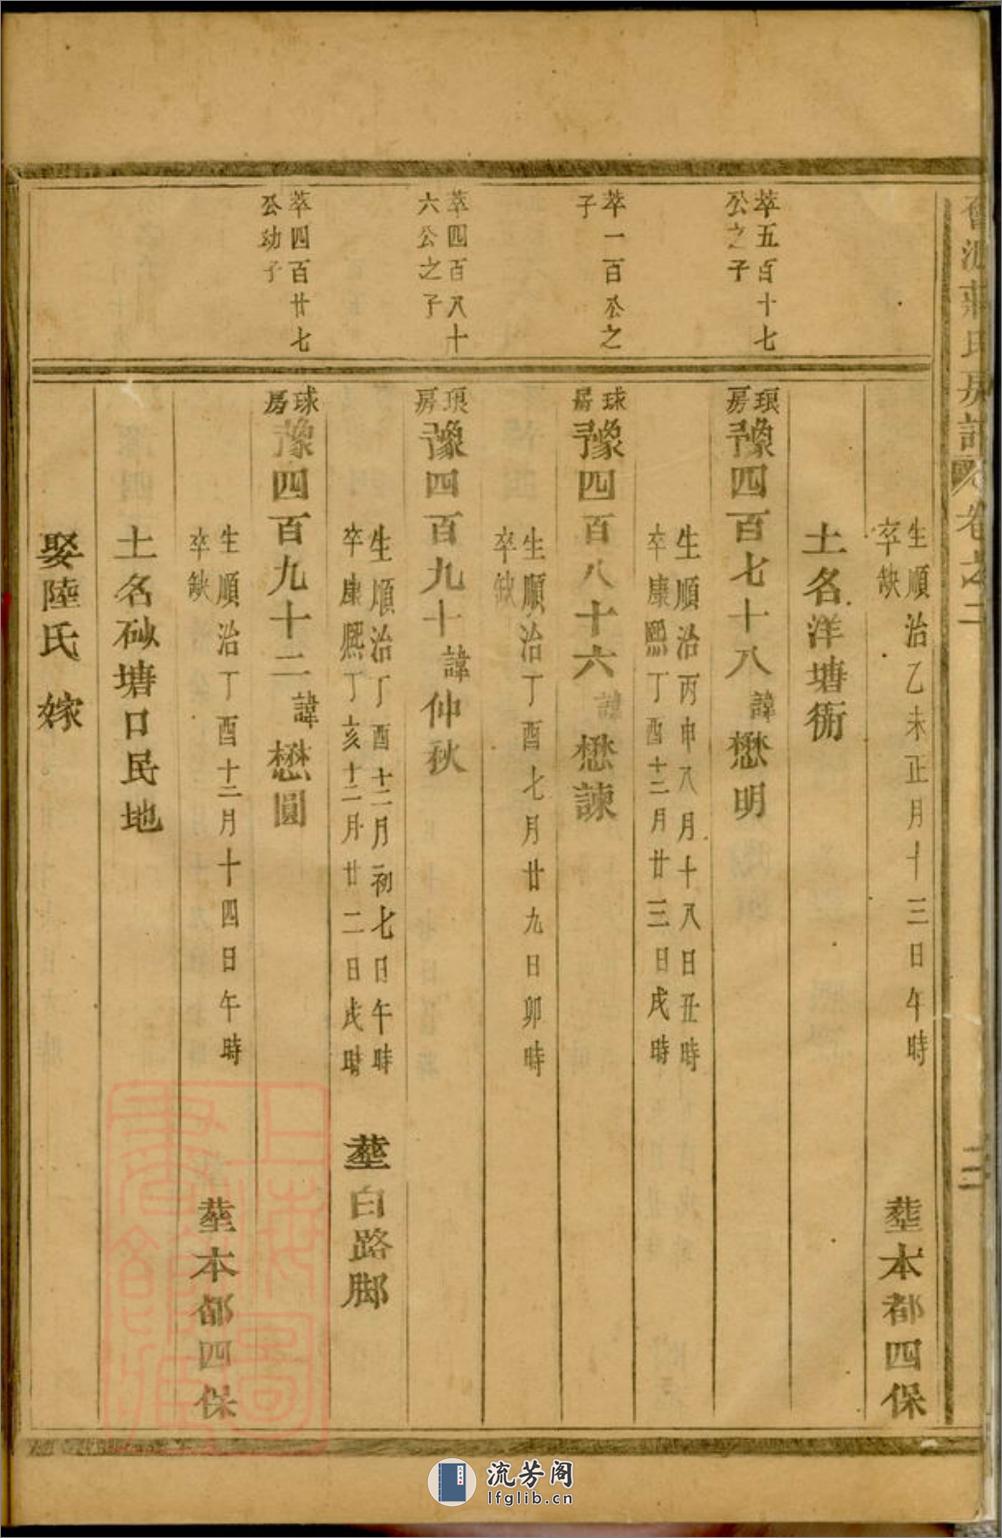 氏房譜 卷之二
生順治乙未正月十三日午時
卒缺
塟本都四保
土名洋塘衕
萃五百十七
公之子
琅房
豫四百七十八諱懋明
生順治丙申八月十八日丑時
卒康熙丁酉十二月廿三日戌時
萃一百公之
子
球房
豫四百八十六諱懋諫
生順治丁酉七月廿九日卯時
卒缺
萃四百八十
六公之子
琅房
豫四百九十諱仲秋
生順治丁酉十二月初七日午時
卒康熙丁亥十二月廿二日戌時
塟白路脚
萃四百廿七
公幼子
球房
豫四百九十二諱懋圓
生順治丁酉十二月十四日午時
卒缺
塟本都四保
土名砂塘口民地
娶陸氏 嫁
上海圖書館藏
流芳阁
lfglib.cn